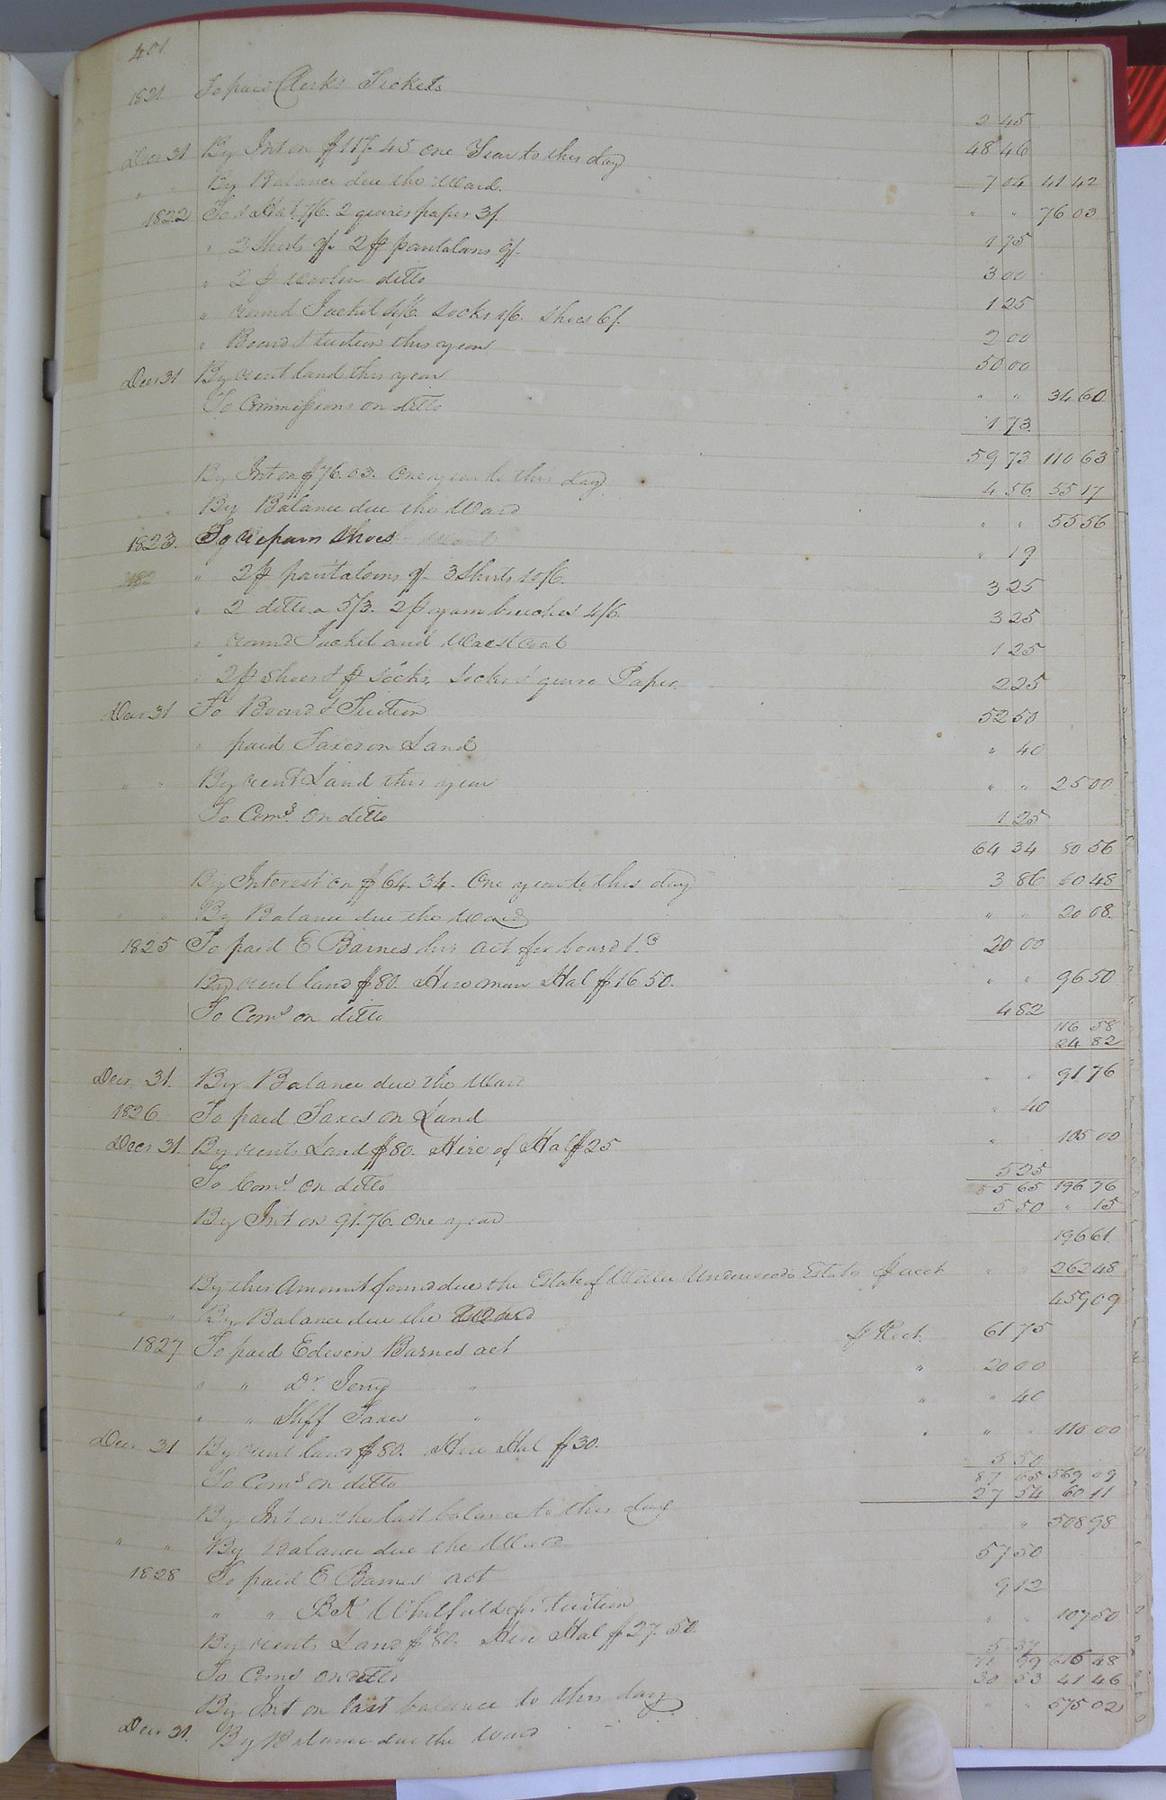 401
1821 To paid Clerks Tickets 2 45
48 46
Decr 31 By Int on $117.45 one Year to this day 7 04 41 42
" " By Balance due the Ward. " " 76 03
1822 To 1 Hat 7/6. 2 quires paper 3/. 1 75
" 2 Shirts 9/. 2 pr pantaloons 9/. 3 00
" 2 pr woolen ditto 1 25
" round Jacket 4/6. Socks 1/6. Shoes 6/. 2 00
" Board & tuition this year 50 00
Decr 31 By rent land this year " " 34 60
To Commissions on ditto 1 73
59 73 110 63
By Int on $76.03. One year to this day 4 56 55 17
" " By Balance due the Ward " " 55 56
1823. To Repairn Shoes " 19
" 2 pr pantaloons 9/. 3 Shirts 10/6. 3 25
" 2 ditto a 5/3. 2 pr yarn breeches 4/6. 3 25
" round Jacket and Waistcoat 1 25
" 2 pr Shoes 1 pr Socks, quire Paper. 2 25
Decr 31 To Board & Tuition 52 50
" paid Taxes on Land " 40
" " By rent Land this year " " 25 00
To Coms. on ditto 1 25
64 34 80 56
By Interest on $64.34. One year to this day 3 86 60 48
" " By Balance due the Ward " " 20 08
1825 To paid E Barnes his act for board &c 20 00
By rent land $80. Hire man Hal $16.50. " " 96 50
To Coms on ditto 4 82
116 58
24 82
Decr 31. By Balance due the Ward " " 91 76
1826 To paid Taxes on Land " 40
Decr 31 By rents Land $80. Hire of Hal $25 " 105 00
To Coms on ditto 5 25
5 65 196 76
By Int on 91.76. One year 5 50 " 15
196 61
By this Amount found due the Estate of Underwoods Estate 262 48
" " By Balance due the Ward 459 09
1827 To paid Edwin Barnes act pr Rect. 61 75
" " Dr. Terry " " 20 00
" " Shff Taxes " " " 40
Decr 31 By rent land $80. Hire Hal $30. " " " 110 00
To Coms on ditto 5 50
87 65 569 09
By Int on the last balance to this day 27 54 60 11
" " By Balance due the Ward " 508 98
1828 To paid E Barnes act 57 50
" " B K Whitfield for tuition 9 12
By rents Land $80. Hire Hal $27.50 " " 107 50
To Coms on ditto 5 37
71 99 616 48
By Int on last balance to this day 30 53 41 46
Decr 31. By Balance due the Ward " " 575 02